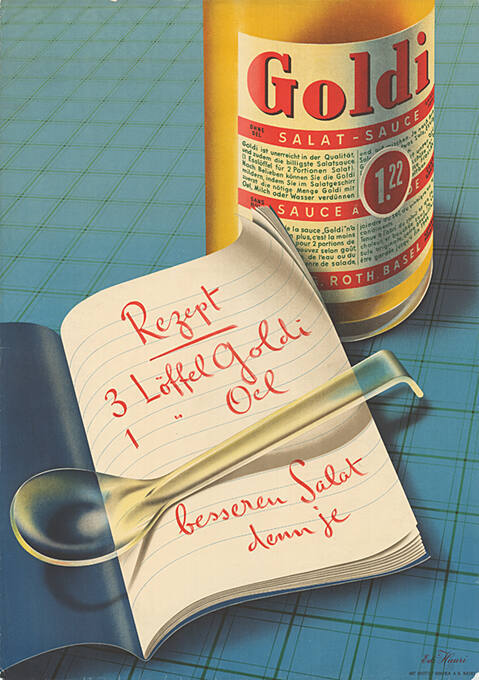 Goldi
OHNE OEL
SALAT-SAUCE
Goldi ist unerreicht in der Qualität,
und zudem die billigste Salatsauce
(1 Esslöffel für 2 Portionen Salat)
Nach Belieben können Sie die Goldi
mildern, indem Sie im Salatgeschirr
zuerst die nötige Menge Goldi mit
Oel, Milch oder Wasser verdünnen
1.22
SANS
SAUCE À
la sauce „Goldi" n'a
plus, c'est la moins
pour 2 portions de
pouvez selon goût
de l'eau ou du
genre de salade,
ROTH BASEL
Rezept
3 Löffel Goldi
1 " Oel
besseren Salat
denn je
Edi Hauri